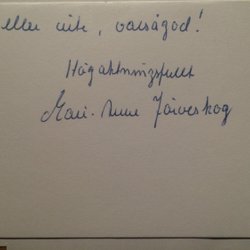 eller inte, varsågod!
Högaktningsfullt
Mari-Anne